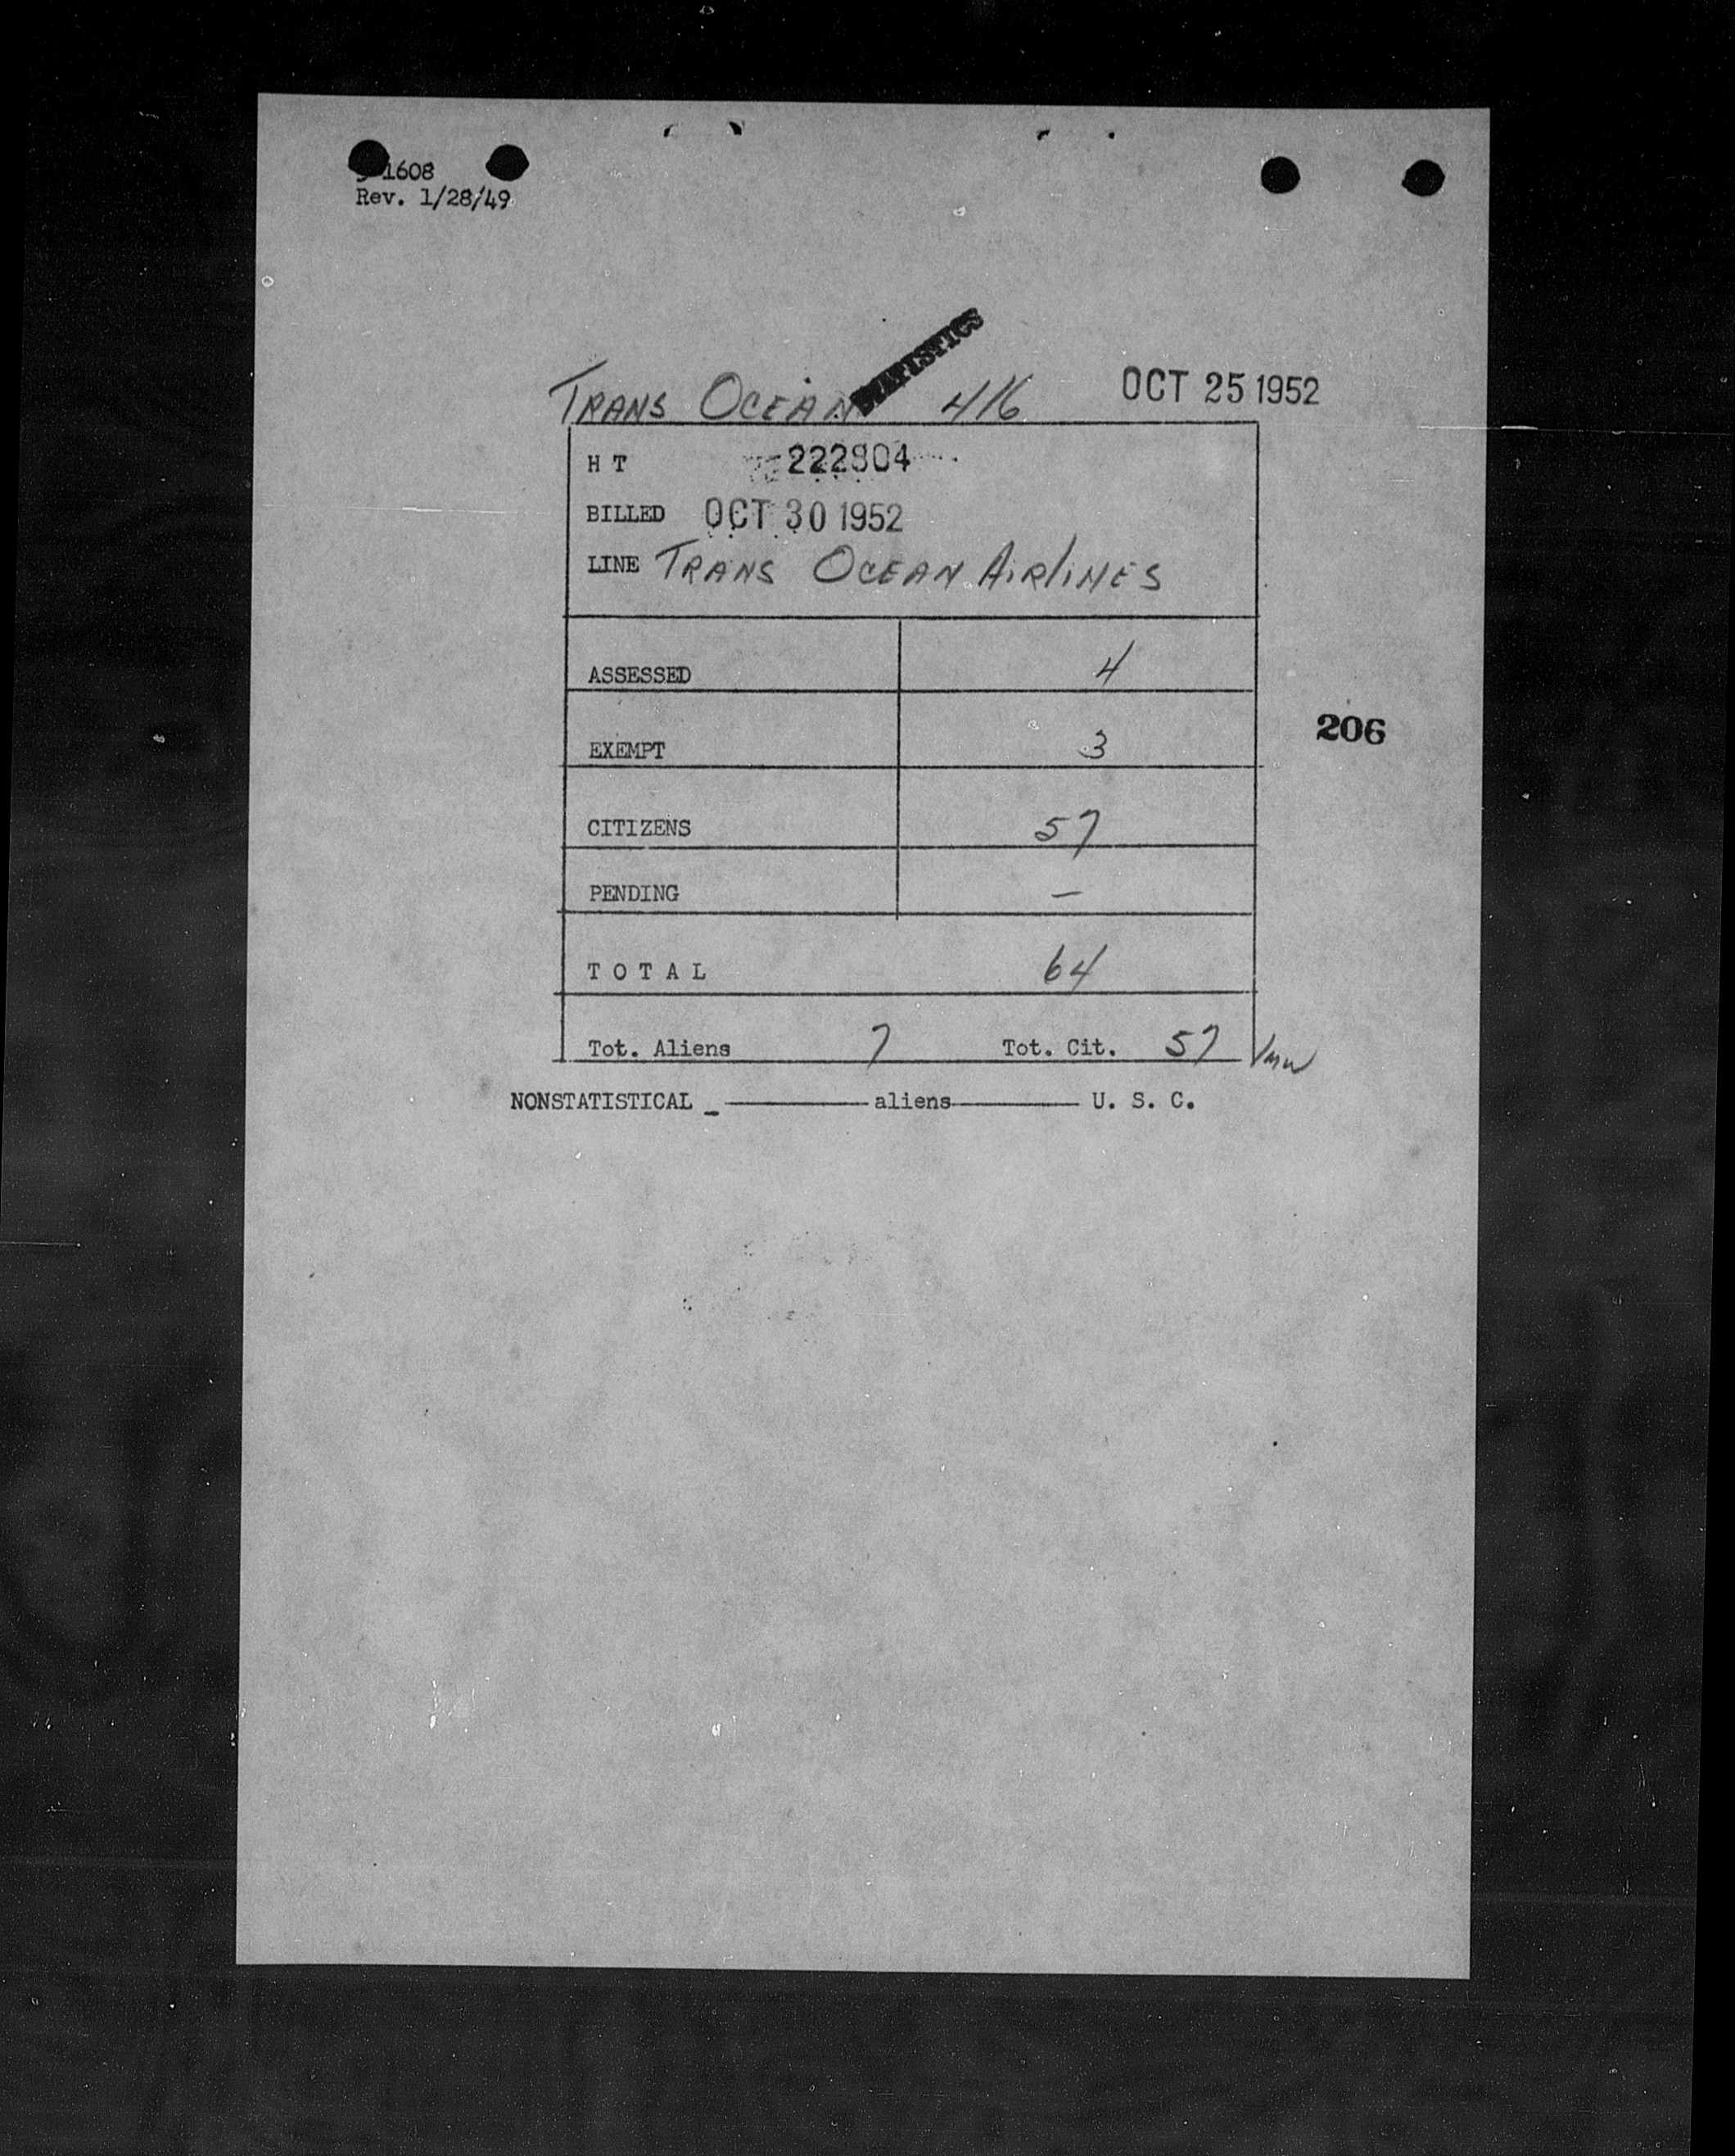 1608
Rev. 1/28/49
STATISTICS
TRANS OCEAN 416 OCT 25 1952
H T 222804
BILLED OCT 30 1952
LINE TRANS OCEAN AIRLINES
ASSESSED 4
EXEMPT 3
206
CITIZENS 57
PENDING —
T O T A L 64
Tot. Aliens 7 Tot. Cit. 57
NONSTATISTICAL _ ———— aliens ———— U. S. C.